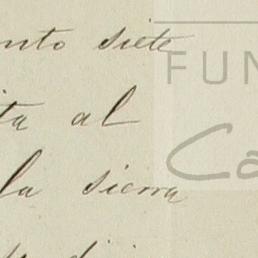 nto siete
ta al
la sierra
FUN
Ca